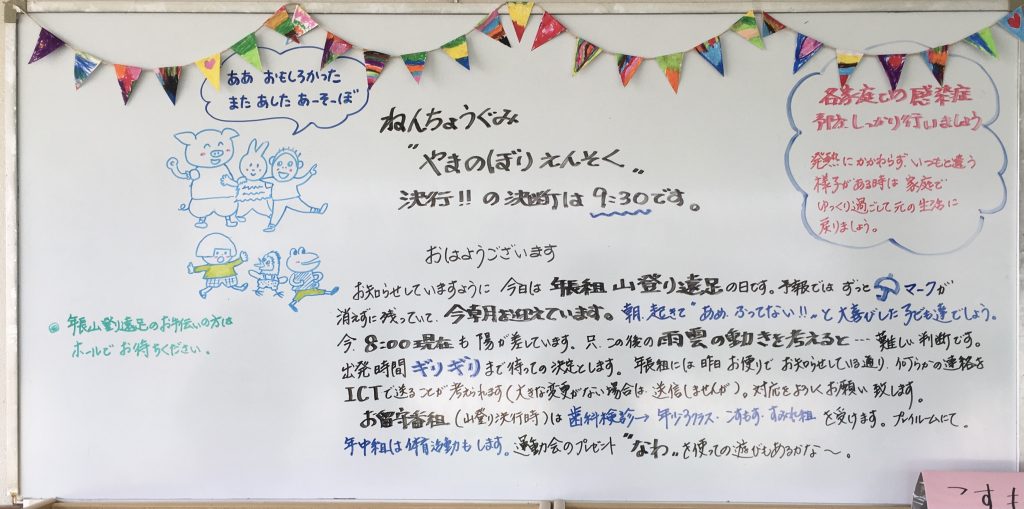 ああ おもしろかった
また あした あーそーぼ
ねんちょうぐみ
"やまのぼり えんそく"
決行!! の決断は 9:30です。
各家庭での感染症
予防 しっかり行いましょう
発熱にかかわらず いつもと違う
様子がある時は 家庭で
ゆっくり過ごして 元の生活に
戻りましょう。
おはようございます
お知らせしていますように 今日は 年長組 山登り遠足 の日です。予報では ずっと ☂ マークが
消えずに 残っていて、今朝を迎えています。朝、起きて "あめ、ふってない!!" と 大喜びした 子ども達でしょう。
今、8:00現在も 陽が差しています。只、この後の 雨雲の動きを考えると… 難しい判断です。
出発時間 ギリギリ まで待っての決定とします。年長組には 昨日 お便りで お知らせしている通り、何らかの連絡を
ICTで送ることが考えられます(大きな変更がない場合は 送信しませんが)。対応をよろしくお願い致します。
お留守番組 (山登り決行時)は 歯科検診→ 年少クラス・こすもす・すみれ組 を受けます。プレイルームにて。
年中組は 体育活動も します。運動会のプレゼント "なわ" を使っての遊びもあるかな〜。
◉ 年長山登り遠足のお手伝いの方は
ホールでお待ちください。
こすも